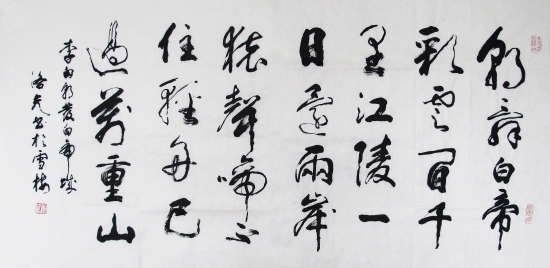 朝辭白帝
彩雲間千
里江陵一
日還兩岸
猿聲啼不
住輕舟已
過萬重山
李白發白帝城
書於雪